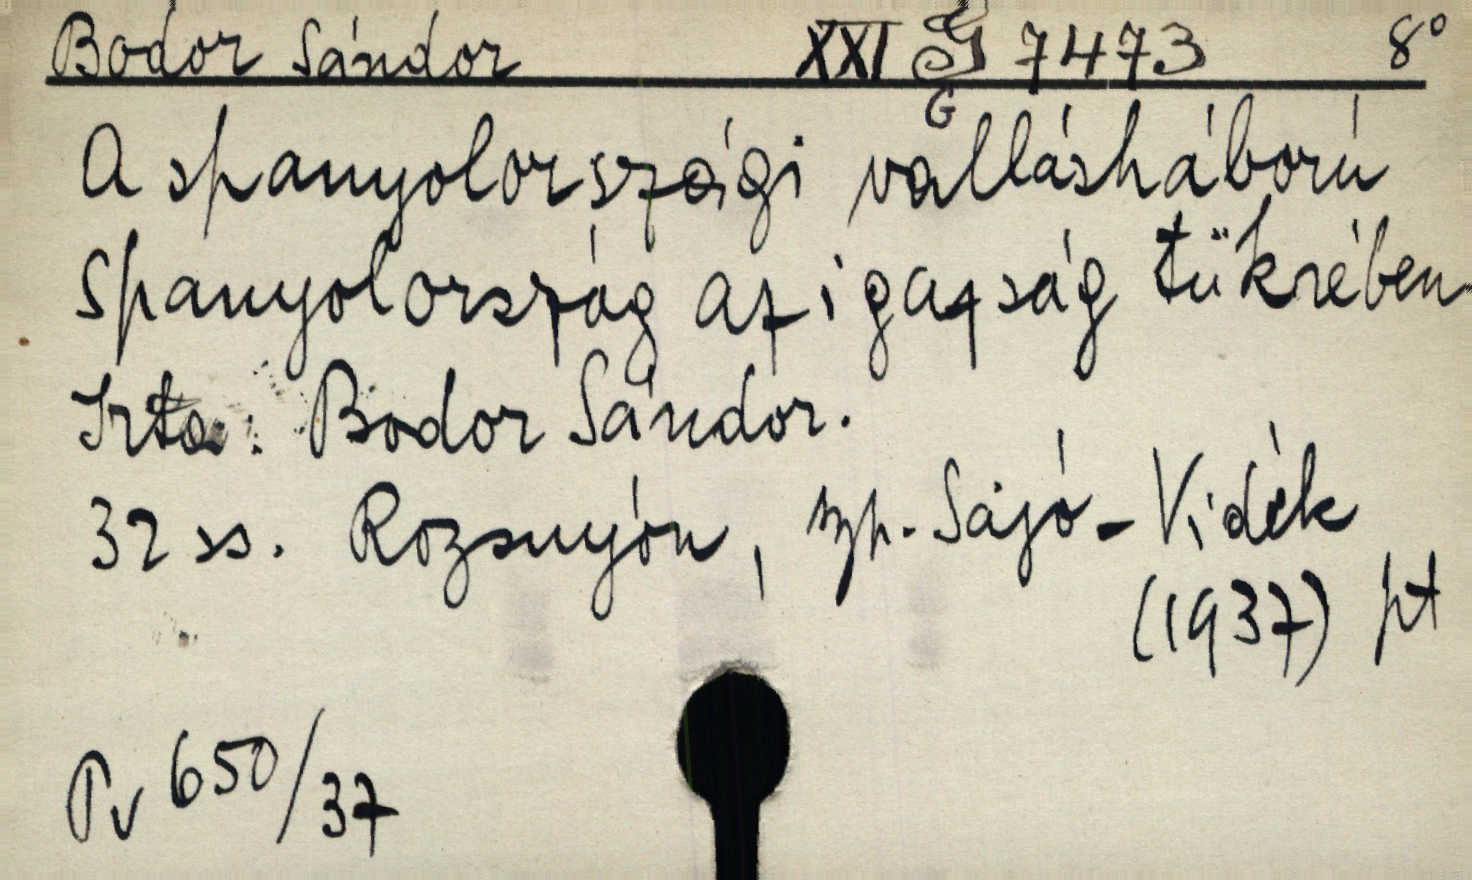 Bodor Sándor XXI G 7473 8°
G
A spanyolországi vallásháború
Spanyolország az igazság tükrében
Irta: Bodor Sándor.
32 ss. Rozsnyón, Sajó-Vidék
(1937) pt
Pv 650/37